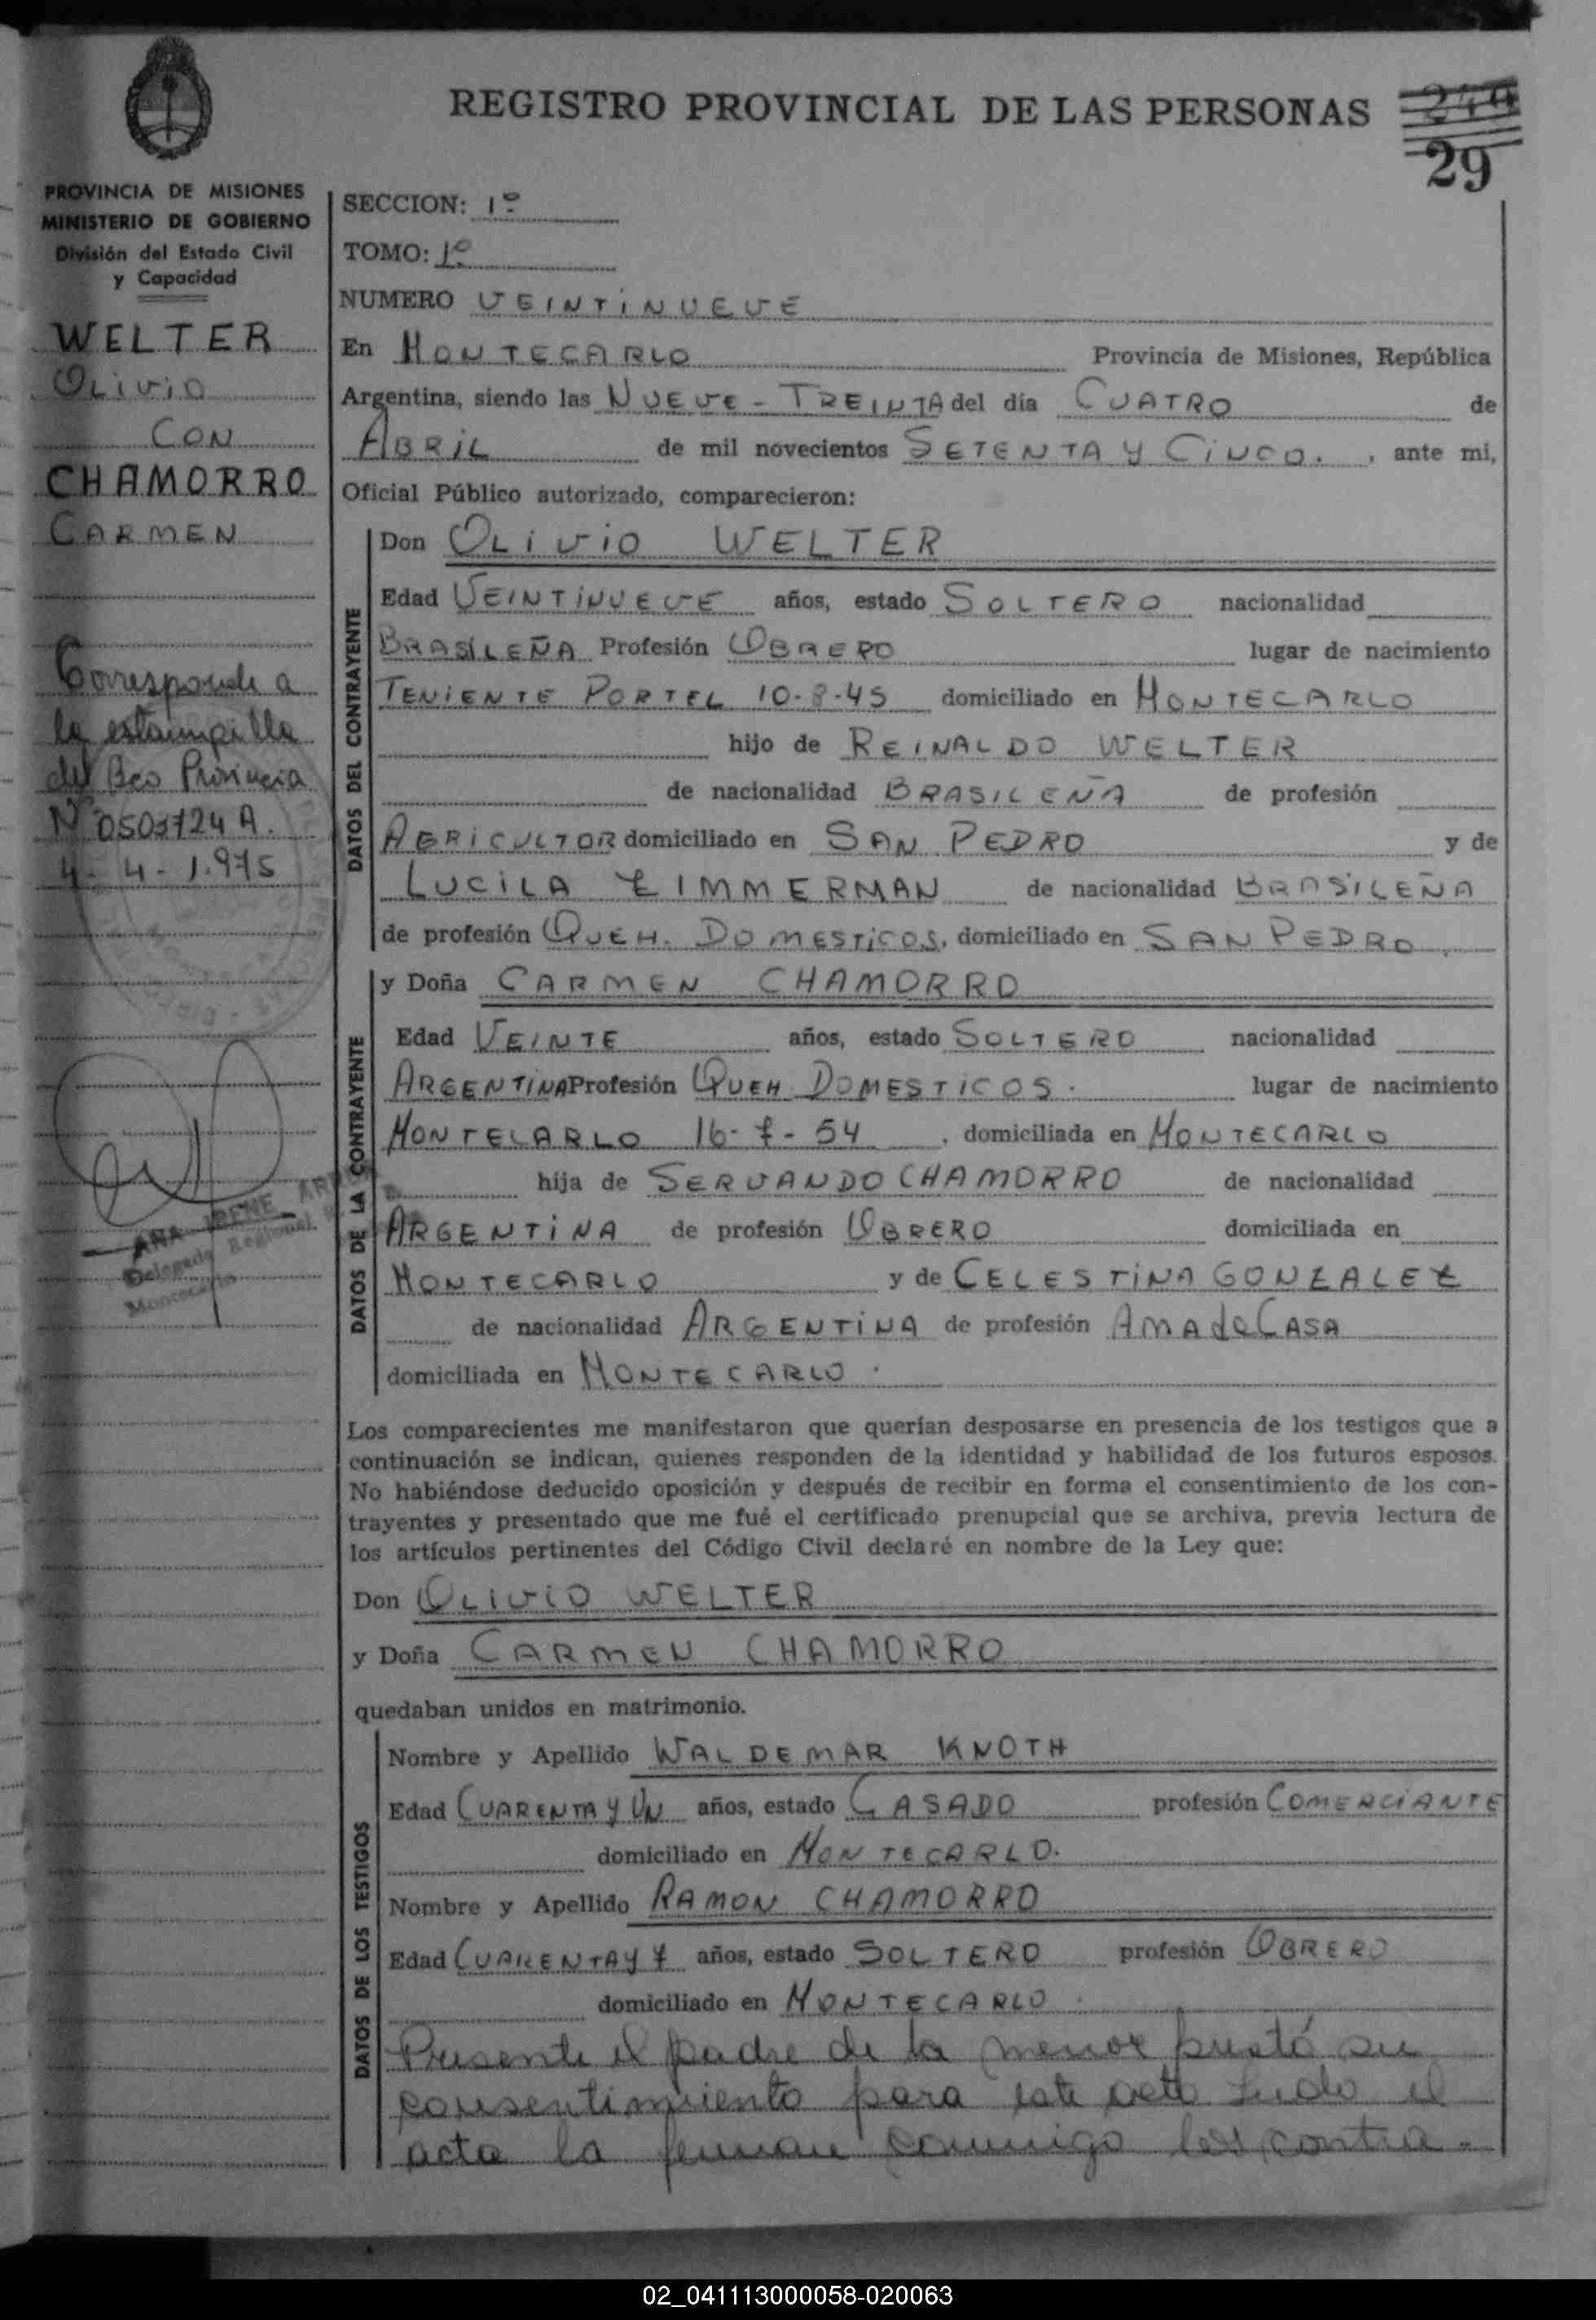 REGISTRO PROVINCIAL DE LAS PERSONAS
29
PROVINCIA DE MISIONES
MINISTERIO DE GOBIERNO
División del Estado Civil
y Capacidad
WELTER
OLIVIO
CON
CHAMORRO
CARMEN
Corresponde a
la estampilla
del Bco Provincia
Nº 0503724 A.
4-4-1.975
ANA IRENE
Delegada Regional
Montecarlo
SECCION: 1º
TOMO: 1º
NUMERO VEINTINUEVE
En MONTECARLO Provincia de Misiones, República
Argentina, siendo las NUEVE-TREINTA del día CUATRO de
ABRIL de mil novecientos SETENTA Y CINCO. , ante mi,
Oficial Público autorizado, comparecieron:
DATOS DEL CONTRAYENTE
Don OLIVIO WELTER
Edad VEINTINUEVE años, estado SOLTERO nacionalidad
BRASILEÑA Profesión OBRERO lugar de nacimiento
TENIENTE PORTEL 10-8-45 domiciliado en MONTECARLO
hijo de REINALDO WELTER
de nacionalidad BRASILEÑA de profesión
AGRICULTOR domiciliado en SAN PEDRO y de
LUCILA ZIMMERMAN de nacionalidad BRASILEÑA
de profesión QUEH. DOMESTICOS, domiciliado en SAN PEDRO
DATOS DE LA CONTRAYENTE
y Doña CARMEN CHAMORRO
Edad VEINTE años, estado SOLTERO nacionalidad
ARGENTINA Profesión QUEH DOMESTICOS. lugar de nacimiento
MONTECARLO 16-7-54 , domiciliada en MONTECARLO
hija de SERVANDO CHAMORRO de nacionalidad
ARGENTINA de profesión OBRERO domiciliada en
MONTECARLO y de CELESTINA GONZALEZ
de nacionalidad ARGENTINA de profesión AMA de CASA
domiciliada en MONTECARLO.
Los comparecientes me manifestaron que querían desposarse en presencia de los testigos que a
continuación se indican, quienes responden de la identidad y habilidad de los futuros esposos.
No habiéndose deducido oposición y después de recibir en forma el consentimiento de los con-
trayentes y presentado que me fué el certificado prenupcial que se archiva, previa lectura de
los artículos pertinentes del Código Civil declaré en nombre de la Ley que:
Don OLIVIO WELTER
y Doña CARMEN CHAMORRO
quedaban unidos en matrimonio.
DATOS DE LOS TESTIGOS
Nombre y Apellido WALDEMAR KNOTH
Edad CUARENTA Y UN años, estado CASADO profesión COMERCIANTE
domiciliado en MONTECARLO.
Nombre y Apellido RAMON CHAMORRO
Edad CUARENTA Y 7 años, estado SOLTERO profesión OBRERO
domiciliado en MONTECARLO.
Presente el padre de la menor prestó su
consentimiento para este acto Leido el
acta la firman conmigo los contra-
02_041113000058-020063